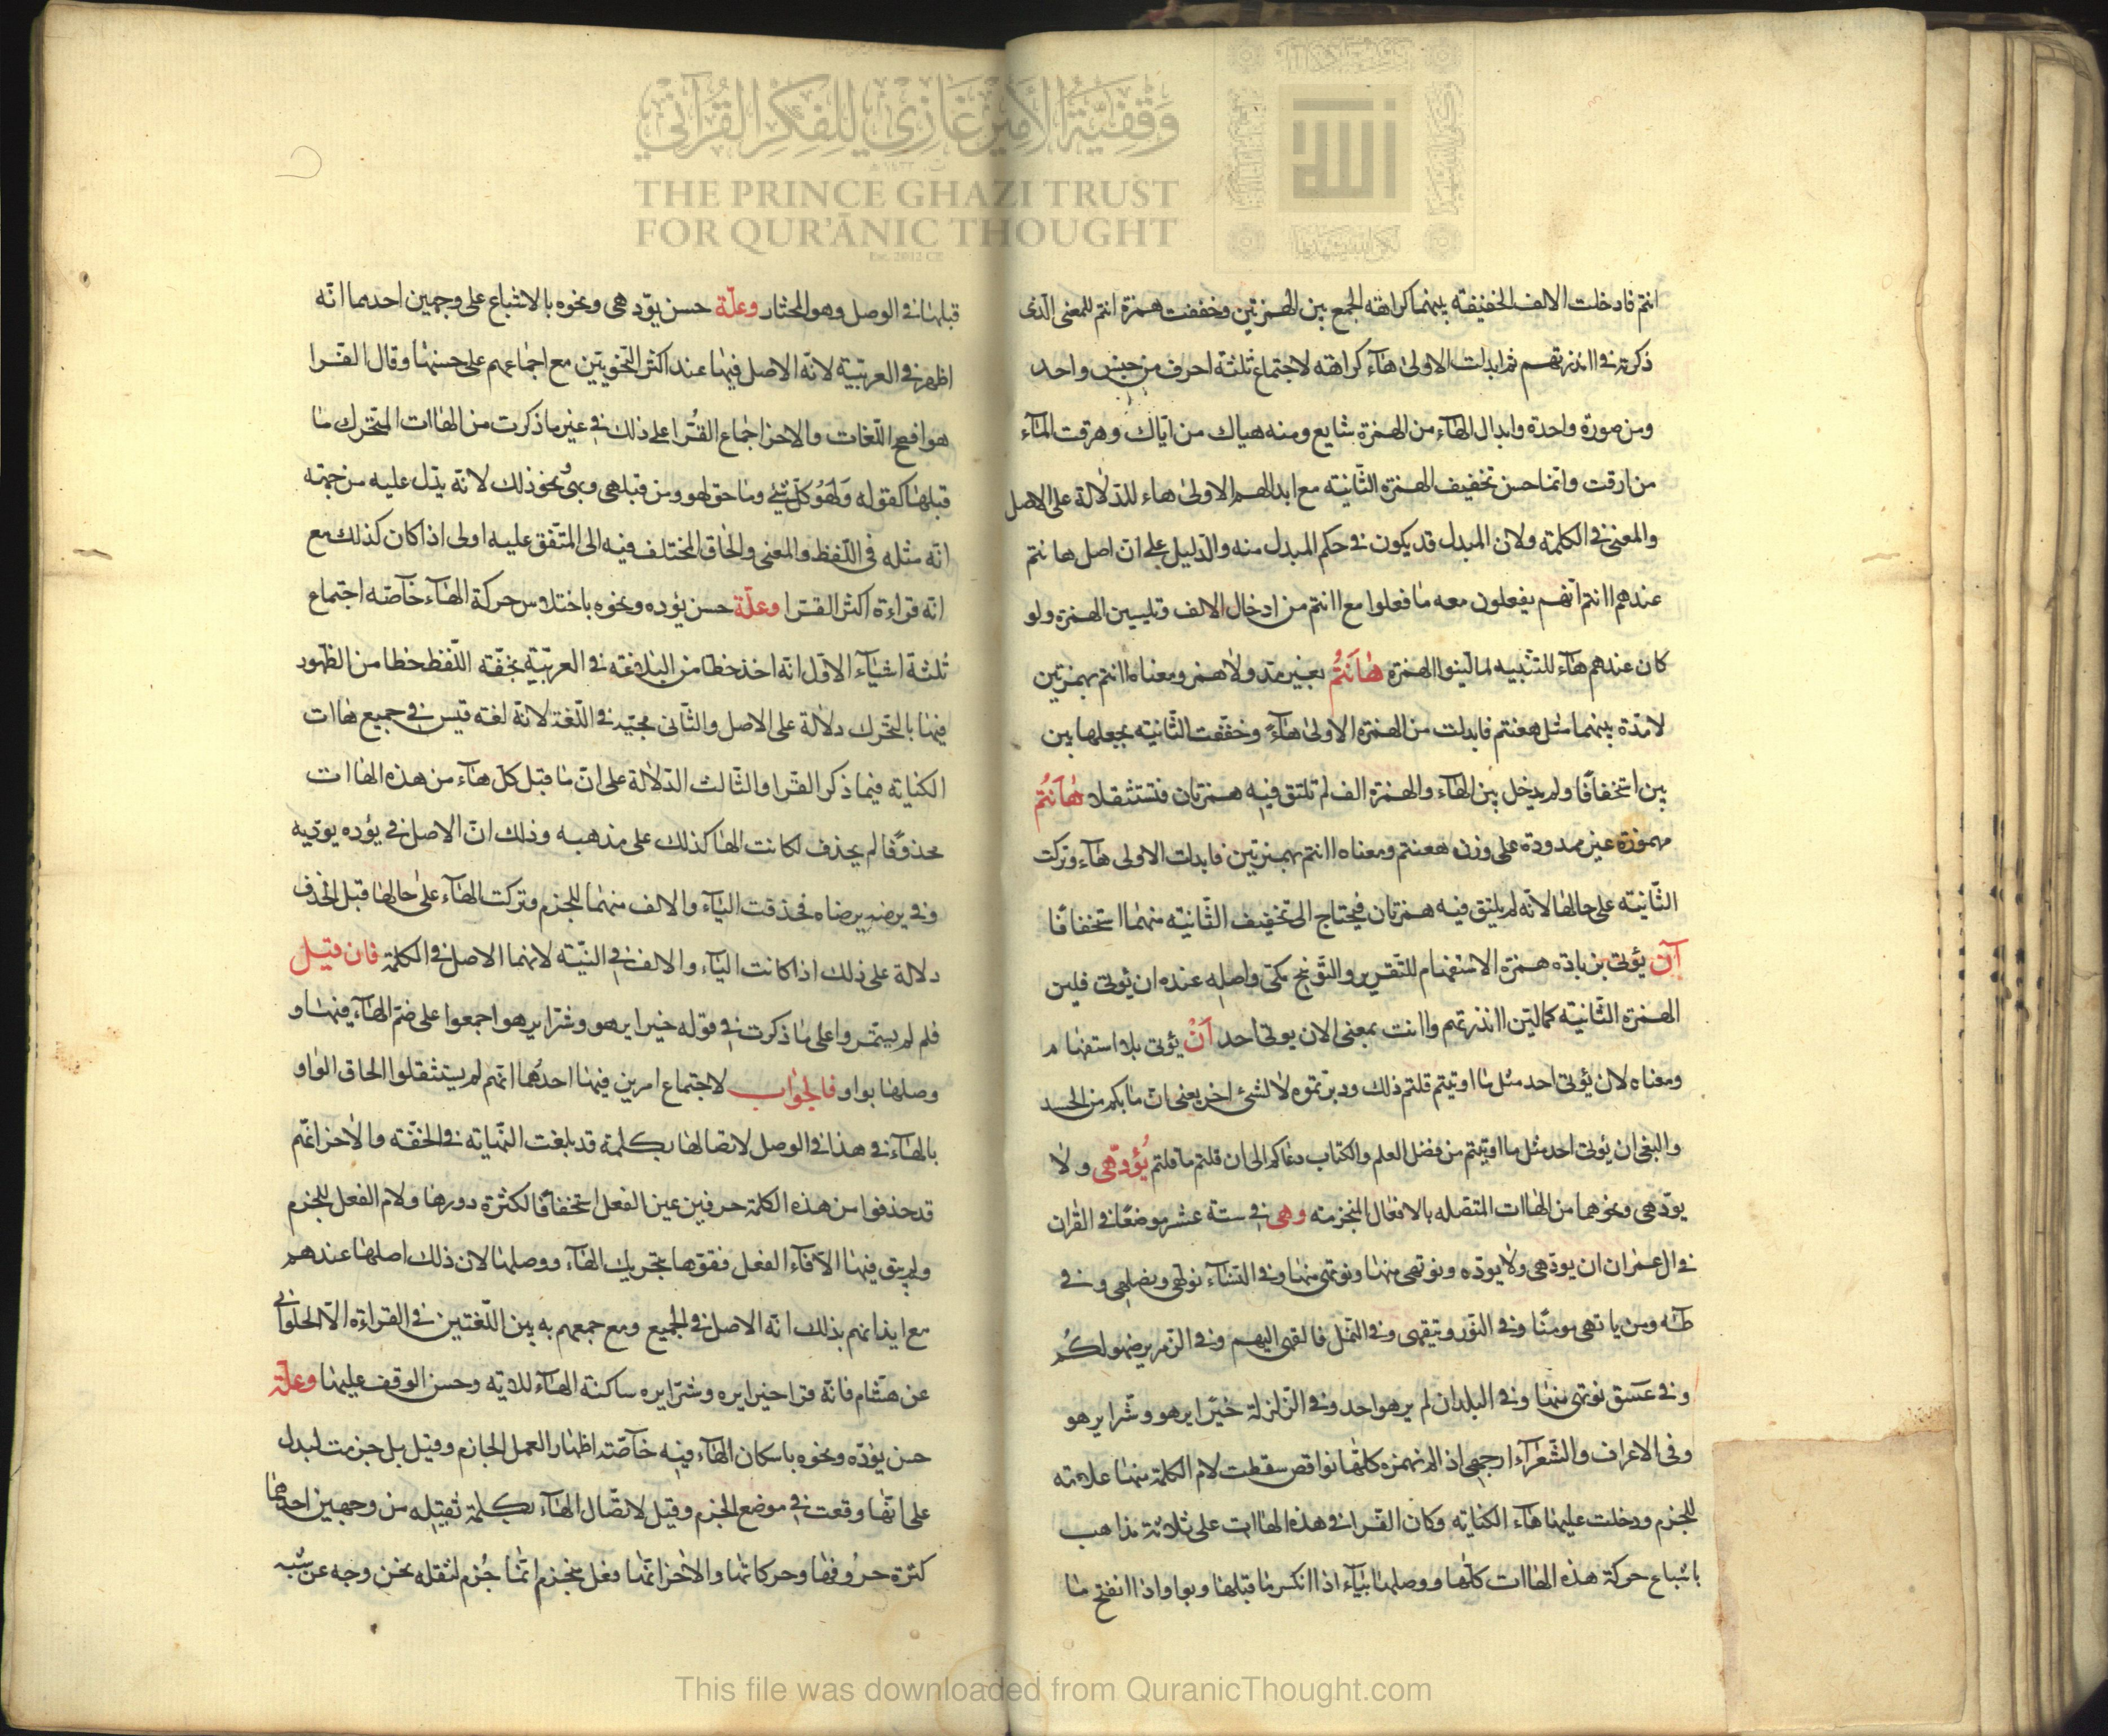 وَقْفِيَّةُ الأَمِيْرِ غَازِي لِلْفِكْرِ الْقُرْآنِي
THE PRINCE GHAZI TRUST
FOR QUR'ĀNIC THOUGHT
Est. 2012 CE
انتم فادخلت الالف الخفيفة بينهما كراهة الجمع بين الهمزتين وخففت همزة انتم للمعنى الّذى
ذكرته فى اانذرتهم ثم ابدلت الاولى هآء كراهة لاجتماع ثلثة احرف من جنس واحد
ومن صورة واحدة وابدال الهآء من الهمزة شايع ومنه هياك من اياك وهرقت المآء
من ارقت وانما حسن تخفيف الهمزة الثّانية مع ابدالهم الاولى هاء للدّلالة على الاصل
والمعنى فى الكلمة ولان المبدل قد يكون فى حكم المبدل منه والدّليل على انّ اصل هاانتم
عندهم اانتم انّهم يفعلون معه ما فعلوا مع اانتم من ادخال الالف وتليين الهمزة ولو
كان عندهم هآء للتنبيه لما ليّنوا الهمزة هٰاَنْتُمْ بغير مدّ ولا همز ومعناه اانتم بهمزتين
لا مدّة بينهما مثل هعنتم فابدلت من الهمزة الاولى هآءً وخفّفت الثّانية بجعلها بين
بين استخفافًا ولم يدخل بين الهآء والهمزة الف لم تلتق فيه همزتان فتستثقلا هٰاَنْتُمْ
مهموزة غير ممدودة على وزن هعنتم ومعناه اانتم بهمزتين فابدلت الاولى هآء وتركت
الثّانية على حالها لانّه لم يلتق فيه همزتان فيحتاج الى تخفيف الثّانية منهما استخفافًا
آن يؤتى بزيادة همزة الاستفهام للتّقرير والتّوبيخ مكّى واصله عنده اان يؤتى فلين
الهمزة الثّانية كما ليّن اانذرتهم واانت بمعنى الان يوتى احد اَنْ يؤتى بلا استفهام
ومعناه لان يؤتى احد مثل ما اوتيتم قلتم ذلك ودبرتموه لا لشئ اخر يعنى انّ ما بكم من الحسد
والبغى ان يؤتى احد مثل ما اوتيتم من فضل العلم والكتاب دعاكم الى ان قلتم ما قلتم يُؤدّهى ولا
يودّهى ونحوهما من الهاات المتصله بالافعال المنجزمة وهى فى ستة عشر موضعًا فى القران
فى ال عمران ان يودّهى ولا يودّه ونوتهى منها ونوتهى منها وفى النّسآء نولّهى ونصلهى وفى
طٰه ومن ياتهى مومنًا وفى النّور ويتقهى وفى النّمل فالقهى اليهم وفى الزّمر يرضهو لكم
وفى عسق نوتهى منها وفى البلد ان لم يرهو احد وفى الزّلزلة خيرًا يرهو وشرّا يرهو
وفى الاعراف والشّعرآء ارجهى اذ الم نهمزه كلّها نواقص سقطت لام الكلمة منها علامة
للجزم ودخلت عليها هآء الكناية وكان القّرا فى هذه الهاات على ثلاثة مذاهب
باشباع حركة هذه الهاات كلّها ووصلها بيآء اذا انكسر ما قبلها وبواو اذا انفتح ما
قبلها فى الوصل وهو المختار وعلّة حسن يودّهى ونحوه بالاشباع على وجهين احدهما انّه
اظهر فى العربيّة لانّه الاصل فيها عند اكثر النّحويّين مع اجماعهم على حسنها وقال الفّرا
هو افصح اللّغات والاخر اجماع القُرّا على ذلك فى غير ما ذكرت من الهاات المتحّرك ما
قبلها كقوله وَلَهُو كلّ شئ وما حق لهو ومن قبلهى وبهى ونحو ذلك لانّه يدّل عليه من جهة
انّه مثله فى اللّفظ والمعنى والحاق المختلف فيه الى المتّفق عليه اولى اذا كان كذلك مع
انّه قراءة اكثر القرّا وعلّة حسن يؤده ونحوه باختلاس حركة الهآء خآصّة اجتماع
ثلثة اشيآء الاوّل انّه اخذ حظا من البلاغة فى العربيّة بخفّة اللّفظ حظا من الظّهور
فيها بالتحّرك دلالة على الاصل والثّانى مجيّه فى اللّغة لانّه لغة قيس فى جميع هاات
الكناية فيما ذكر الفّرا والثّالث الدّلالة على انّ ما قبل كلّ هآء من هذه الهاات
محذوفًا لم يحذف لكانت الها كذلك على مذهبه وذلك انّ الاصل فى يؤده يودّيه
وفى يرضه يرضاه فحذفت اليآء والالف منهما للجزم وتركت الهآء على حالها قبل الحذف
دلالة على ذلك اذا كانت اليآء والالف فى النيّة لانهما الاصل فى الكلمة فان قيل
فلم لم يستمروا على ما ذكرت فى قوله خيرا يرهو وشرّا يرهو اجمعوا على ضمّ الهآء فيها و
وصلها بواو فالجواب لاجتماع امرين فيها احدُهما انّهم لم يستثقلوا الحاق الواو
بالهآء فى هذا فى الوصل لاتصالها بكلمة قد بلغت النّهاية فى الخفّة والاخر انّهم
قد حذفوا من هذه الكلمة حرفين عين الفعل استخفافًا لكثرة دورها ولام الفعل للجزم
ولم يبق فيها الّا فآء الفعل فقوّها بتحريك الهآء ووصلها لان ذلك اصلها عندهم
مع ايذانهم بذلك انّه الاصل فى الجميع ومع جمعهم به بين اللّغتين فى القراءة الّا الحلوانى
عن هشّام فانّه قرا خيرا يره وشرّا يره ساكنة الهآء للاية وحسن الوقف عليها وعلّة
حسن يؤدّه ونحوه باسكان الهآء فيه خآصّة اظهار العمل الجازم وقيل بل جزمت ليدل
على انّها وقعت فى موضع الجزم وقيل لاتصّال الهآء بكلمة ثقيله من وجهين احدهما
كثرة حرُوفها وحركاتها والاخر انّها فعل منجزم انّما جُزم لثقله نحن وجه عن شبه
This file was downloaded from QuranicThought.com